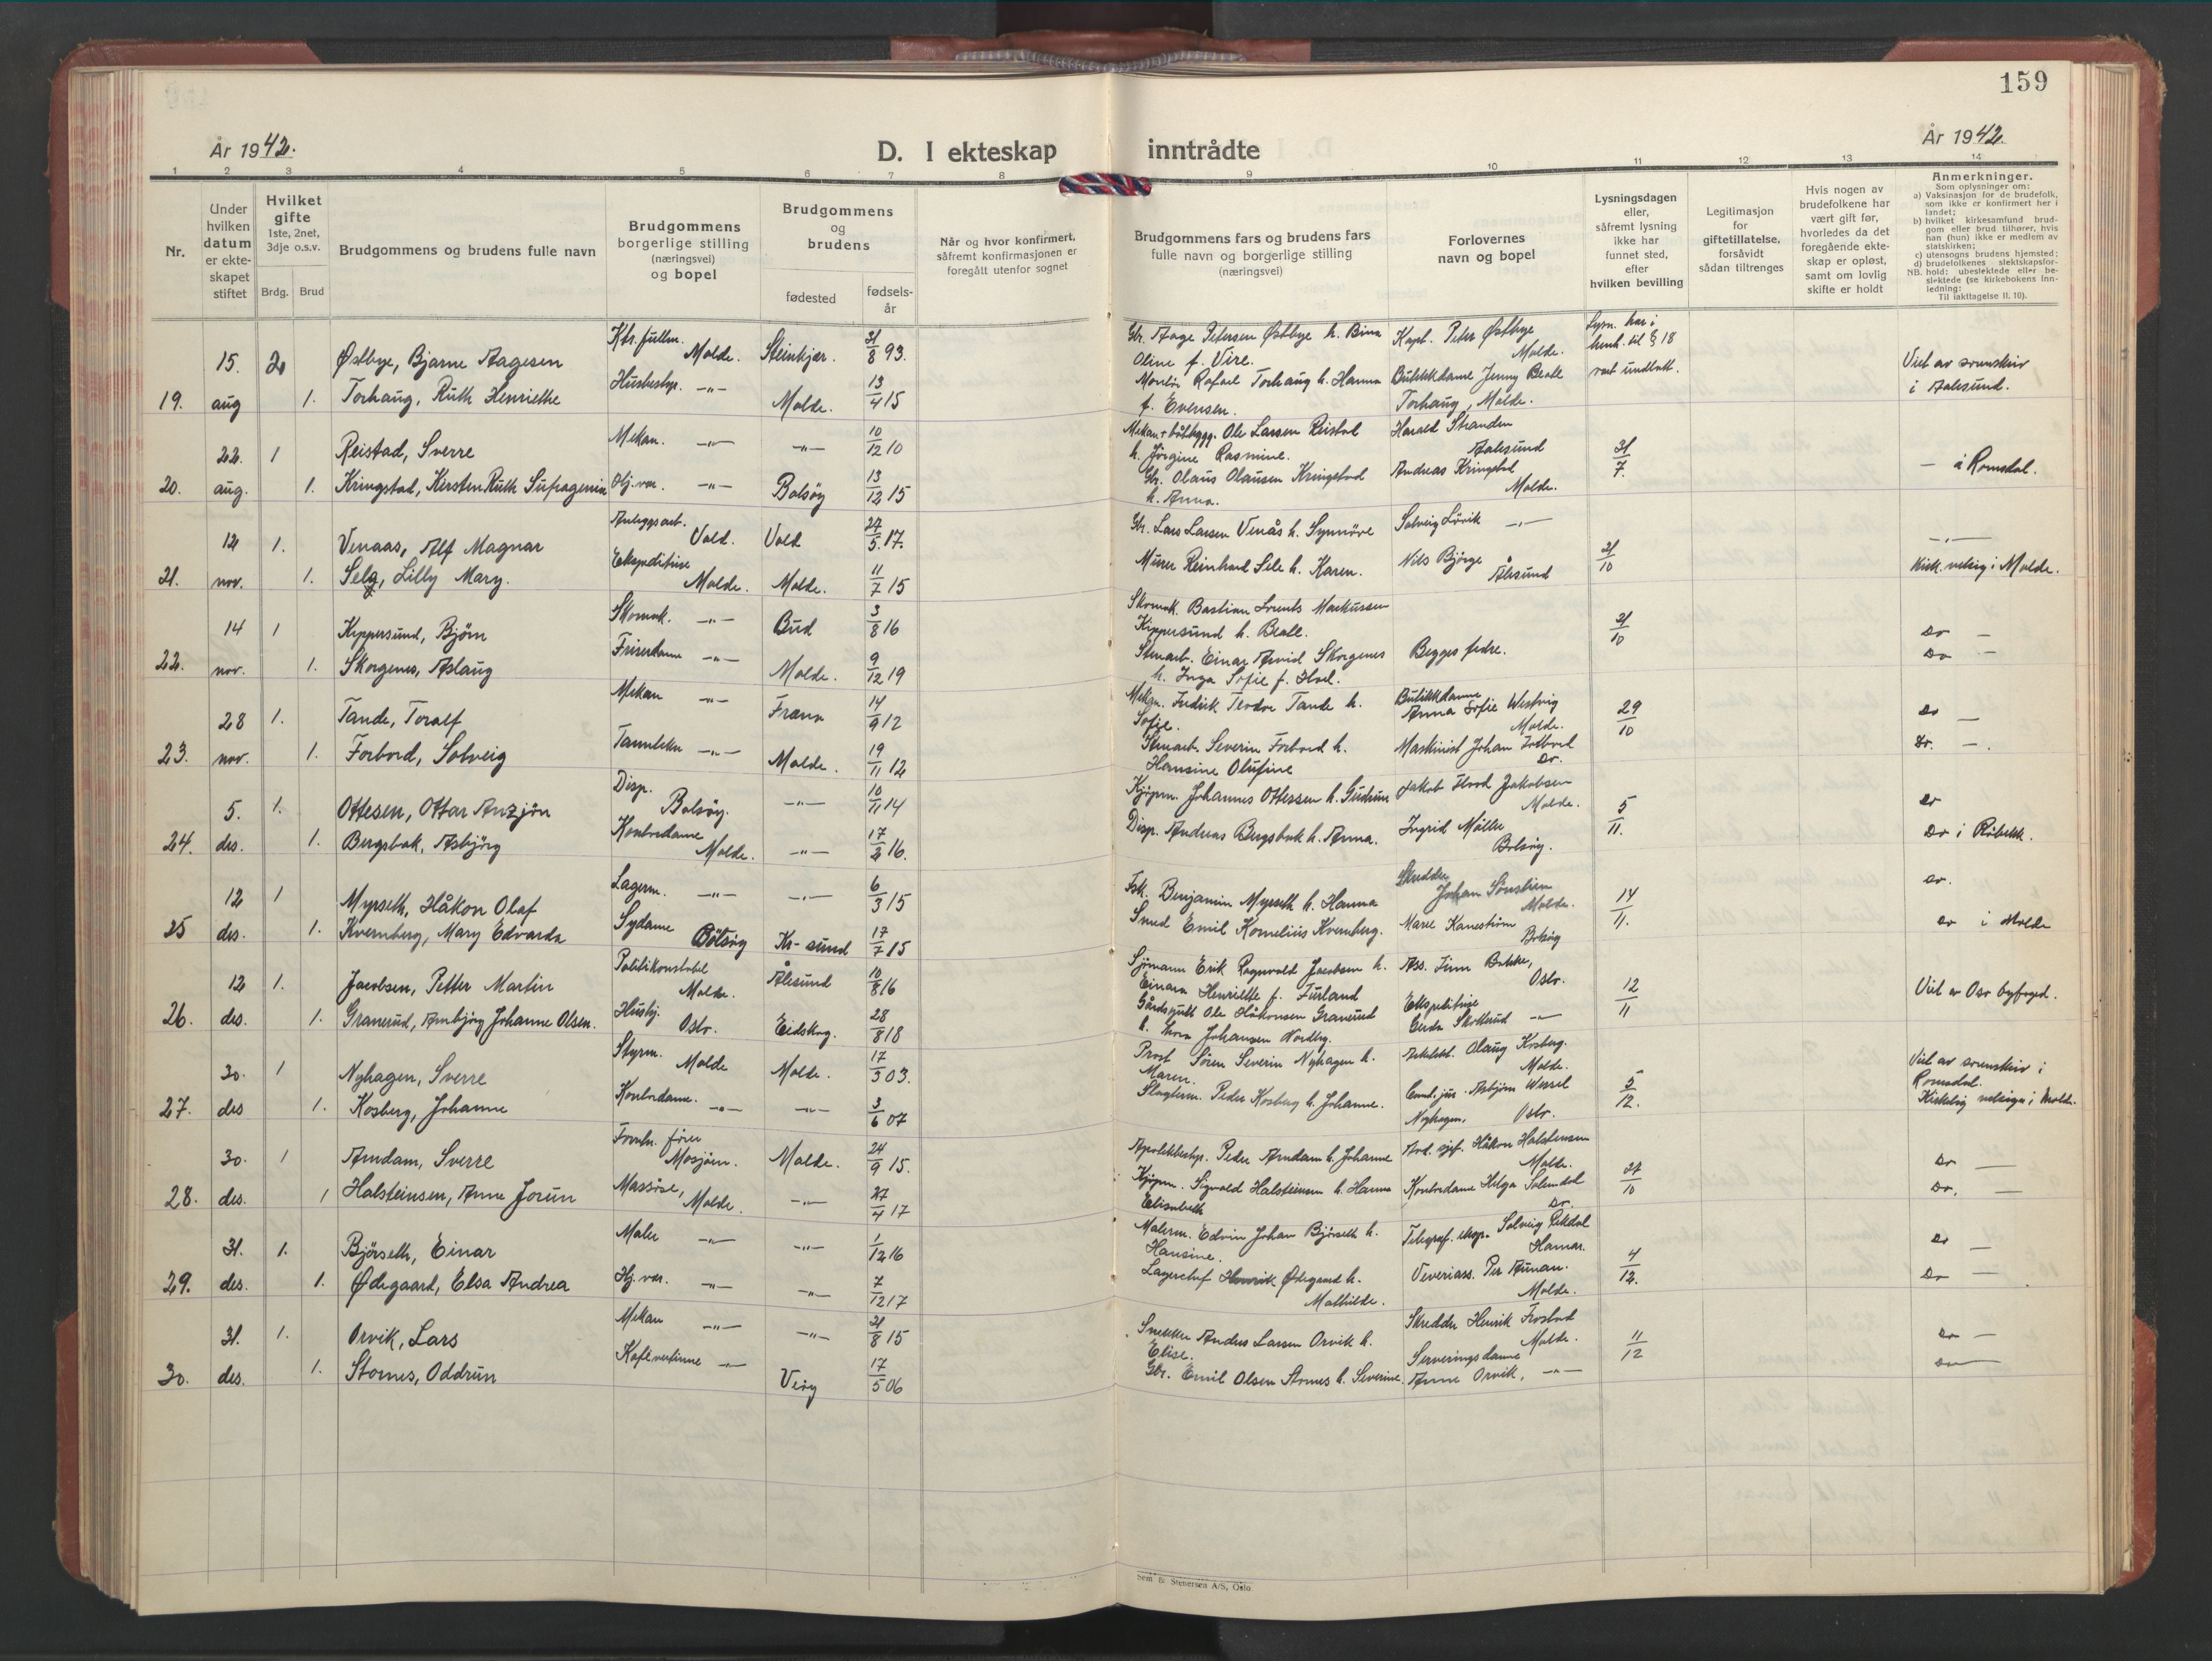 159
År 1942.
D. I ekteskap inntrådte
År 1942.
1 2 3 4 5 6 7 8 9 10 11 12 13 14
Nr.
Under hvilken datum er ekte-skapet stiftet
Hvilket gifte 1ste, 2net, 3dje o.s.v.
Brdg. Brud
Brudgommens og brudens fulle navn
Brudgommens borgerlige stilling (næringsvei) og bopel
Brudgommens og brudens
fødested
fødsels-år
Når og hvor konfirmert, såfremt konfirmasjonen er foregått utenfor sognet
Brudgommens fars og brudens fars fulle navn og borgerlige stilling (næringsvei)
Forlovernes navn og bopel
Lysningsdagen eller, såfremt lysning ikke har funnet sted, efter hvilken bevilling
Legitimasjon for giftetillatelse, forsåvidt sådan tiltrenges
Hvis nogen av brudefolkene har vært gift før, hvorledes da det foregående ekte-skap er opløst, samt om lovlig skifte er holdt
Anmerkninger.
Som oplysninger om:
a) Vaksinasjon for de brudefolk, som ikke er konfirmert her i landet;
b) hvilket kirkesamfund brud-gom eller brud tilhører, hvis han (hun) ikke er medlem av statskirken;
c) utensogns brudens hjemsted;
d) brudefolkenes slektskapsfor-hold: ubeslektede eller be-slektede (se kirkebokens Inn-ledning:
NB.
Til iakttagelse II. 10).
15. 2 Østbye, Bjarne Aagesen Ktr.fullm. Molde. Steinkjer. 31/8 93. Gbr. Aage Petersen Østbye h. Bina Oline f. Vire. Kapt. Peter Østbye Molde. Lysn. har i henh. til § 18 vært undlatt. Viet av sorenskriv i Aalesund.
19. aug 1. Torhaug, Ruth Henriette Husbestyr. -"- Molde. 13/4 15 Rafael Torhaug h. Hanna f. Evensen. Butikkdame Jenny Beate Torhaug, Molde.
22. 1 Reistad, Sverre Mekan. -"- -"- 10/12 10 Mekan + båtbygg. Ole Larsen Reistad h. Jørgine Rasmine. Harald Stranden Aalesund 31/7 — i Romsdal.
20. aug. 1. Kringstad, Kirsten Ruth Hj. vær. -"- Bolsøy 13/12 15 Gbr. Olaus Olausen Kringstad h. Anna. Andreas Kringstad Molde.
12 1. Venaas, Alf Magnar Anleggsarb. Vold. Vold 27/5 17. Gbr. Lars Larsen Venås h. Synnöve Solveig Lövik -"- 21/10 -"-
21. nov. 1. Selg, Lilly Mary. Ekspeditrise Molde. Molde. 11/7 15 Murer Reinhard Sele h. Karen. Nils Bjørge Ålesund Kirk. velsig i Molde.
14 1 Kippersund, Bjørn Skomak. -"- Bud 3/8 16 Skomak. Bastian Lorents Markussen Kippersund h. Beate. 21/10 Do —
22. nov. 1. Skorgenes, Aslaug Friserdame -"- Molde. 9/12 19 Stenarb. Einar Arvid Skorgenes h. Inga Sofie f. Hoel. Begges fedre. Do —
28 1. Tande, Toralf Mekan -"- Fræna 14/9 12 Mekan. Fredrik Teodor Tande h. Sofie. Butikkdamme Anna Sofie Westvig Molde. 29/10 Do —
23. nov. 1. Forbord, Solveig -"- Molde. 19/11 12 Stenarb. Severin Forbord h. Hansine Olufine Maskinist Johan Forbord Do. Do. —.
5. 1. Ottesen, Ottar Anzjön Disp. Bolsøy. -"- 10/11 14 Kjøpm. Johannes Ottessen h. Gudrun Jakob Flood Jakobsen Molde. 5/11. Do
24. des. 1. Bergsbak, Asbjörg Kontordame Molde. -"- 17/2 16. Disp. Andreas Bergsbak h. Anna. Ingrid Møller Bolsöy. Do i Röbekk.
12 1 Myrseth, Håkon Olaf Lagerm. -"- -"- 6/3 15 Fisk. Benjamin Myrseth h. Hanna Skredder Johan Sönstrem Molde. 14/11. Do.
25 des. 1. Kvernberg, Mary Edvarda Sydame Bolsøy Kr-sund 17/7 15 Smed Emil Kornelius Kvernberg. Marie Kanestrøm Bolsøy Do i Molde
12 1. Jacobsen, Petter Martin Politikonstabel Molde. Ålesund 10/8 16 Sjømann Erik Ragnvald Jacobsen h. Einara Henriette f. Furland Ass. Finn Bakke, Oslo. 12/11 Viet av Oslo byfoged.
26. des. 1. Granerud, Arnbjörg Johanne Olsen. Husbj. Oslo. Eidskog. 28/8 18 Gårdbr. Ole Håkonsen Granerud h. Johansen Nordby. Ekspeditrise Gerda Skotterud -"-
30. 1 Nyhagen, Sverre Styrm. Molde Molde. 17/3 03. Prost Sören Severin Nyhagen h. Maren. Arkitekt. Olaug Kosberg. Molde. 5/12. Viet av sorenskriv i Romsdal.
27. des 1. Kosberg, Johanne Kontordame. -"- -"- 3/6 07 Slagterm. Peder Kosberg h. Johanne. Cand. jur. Asbjørn Wessel Nyhagen, Oslo. Kirkelig velsign i Molde.
30. 1 Arndam, Sverre Mosjøen. Molde. 24/9 15. Apotekbestyr. Peder Arndam h. Johanne Håkon Halsteinsen Molde. 27/10 Do —
28. des. 1 Halsteinsen, Anne Jorun Massøse, Molde. -"- 27/4 17 Kjøpm. Sigvald Halsteinsen h. Hanna Elisabeth Kontordame Helga Solemdal Do. Do. —
31. 1. Björseth, Einar Maler -"- -"- 1/12 16 Malerm. Edvin Johan Bjørseth h. Hansine. Telegraf. eksp. Solveig Hamar. 4/12. Do —
29. des. 1. Ødegaard, Elsa Andrea Hj. vær. -"- -"- 7/12 17 Lagerchef Henrik Ødegaard h. Mathilde. Veveriass. Per Aunan. Molde. Do —
31. 1. Orvik, Lars Mekan -"- -"- 21/8 15 Snekker Anders Larsen Orvik h. Elise. Skredder Henrik Frostad Molde. 11/12 Do —
30. des. 1. Stornes, Oddrun Kafévertinne -"- Veöy 17/5 06 Gbr. Emil Olsen Stornes h. Severine. Serveringsdame Anne Orvik, -"- Do —
Sem & Stenersen A/S, Oslo